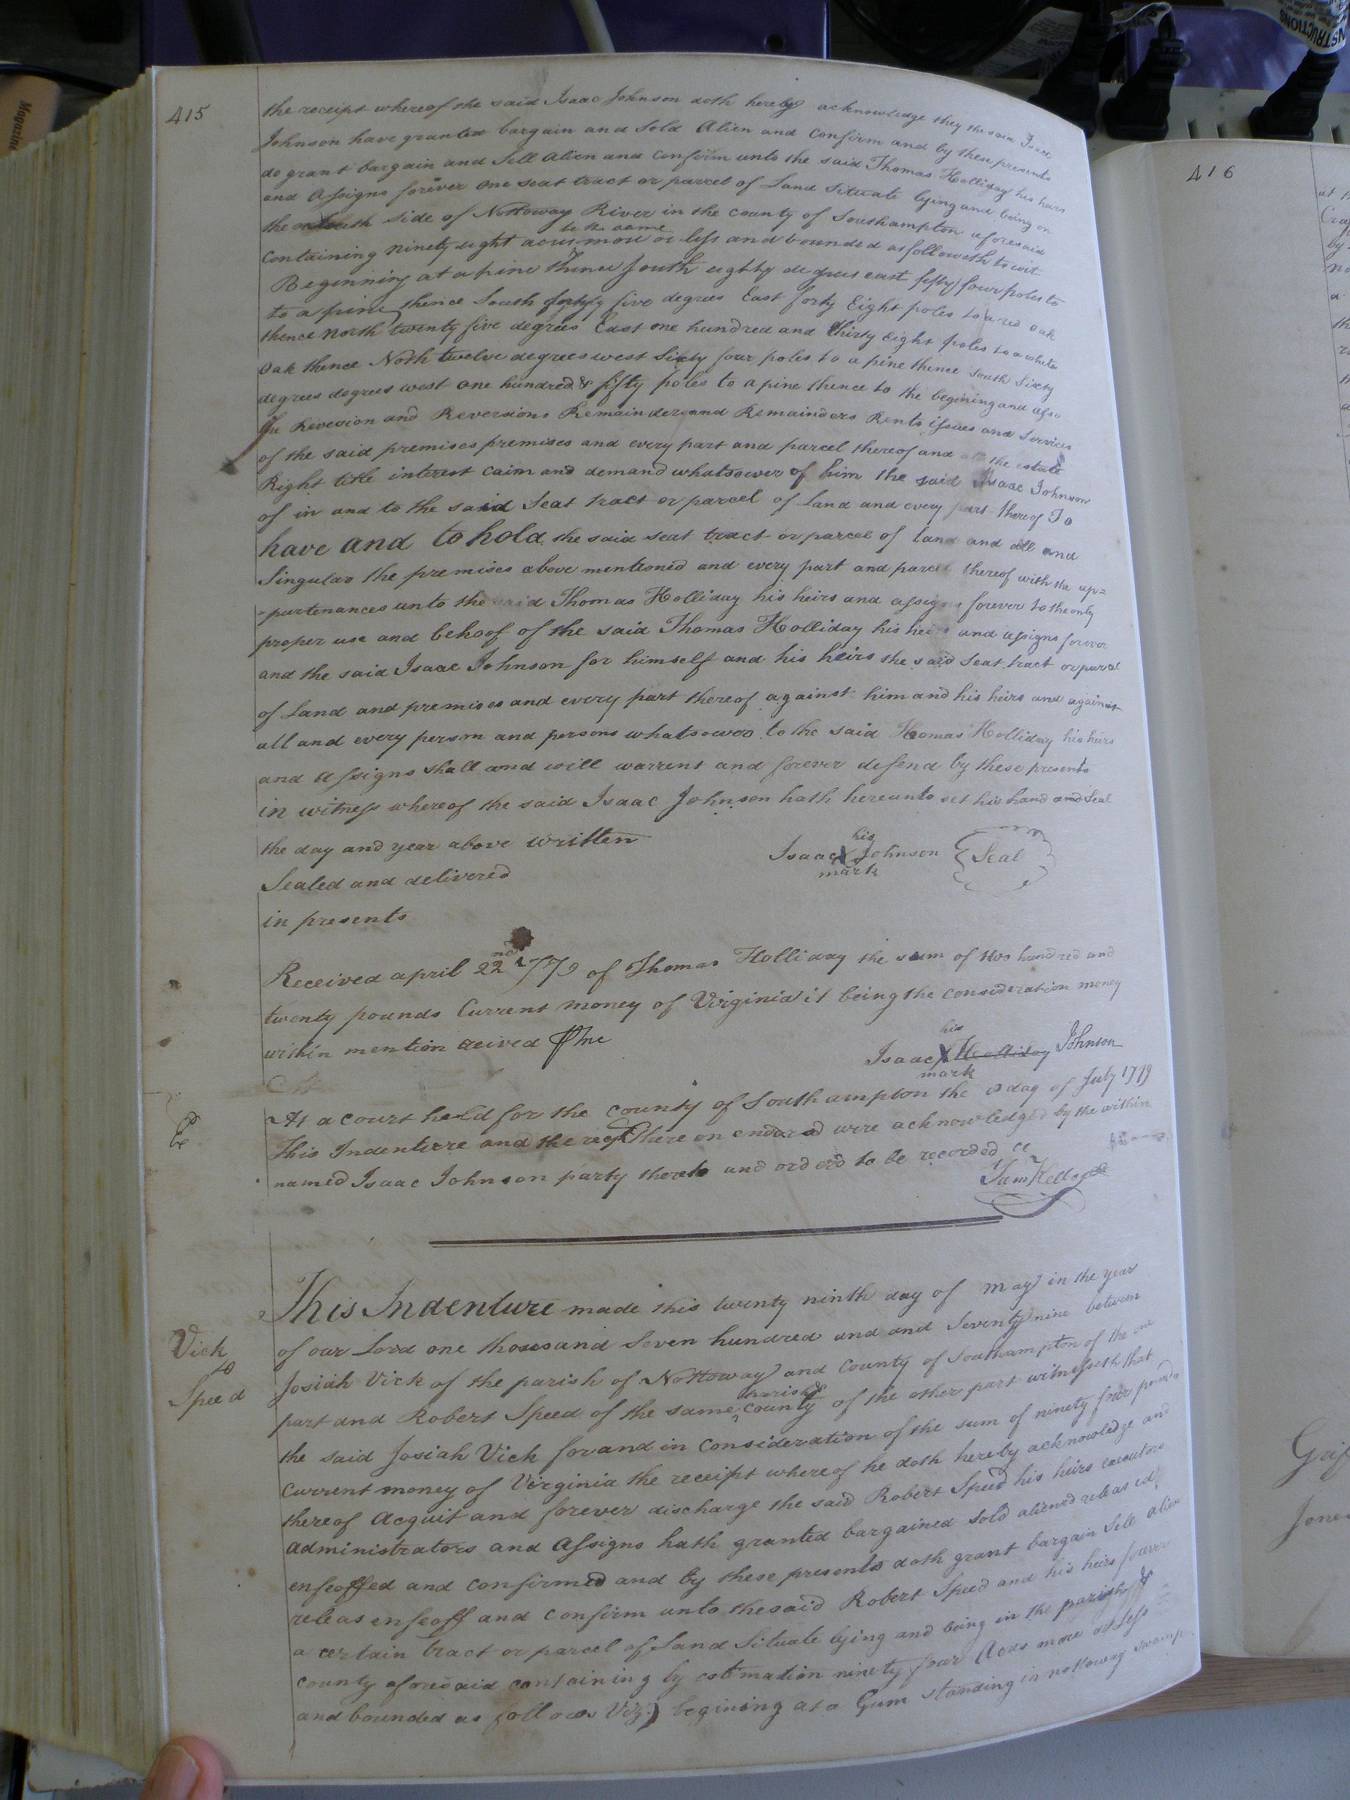 415
the receipt whereof he the said Isaac Johnson doth hereby acknowledge they the said Isaac
Johnson have granted bargain and Sold Alien and Confirm and by these presents
do grant bargain and Sell alien and Confirm unto the said Thomas Holliday his heirs
and Assigns forever one seat tract or parcel of Land Situate lying and being on
the South Side of Nottoway River in the county of Southampton aforesaid
to the same
containing ninety eight acres more or less and bounded as followeth to wit
Beginning at a pine thence South eighty degrees east fifty four poles to
to a pine thence South forty five degrees East forty Eight poles to a red oak
thence North twenty five degrees East one hundred and thirty eight poles to a white
oak thence North twelve degrees west Sixty four poles to a pine thence South Sixty
degrees degrees west one hundred & fifty poles to a pine thence to the begining and also
The Revesion and Reversions Remainder and Remainders Rents issues and Services
of the said premises premises and every part and parcel thereof and all the estate
Right title interest caim and demand whatsoever of him the said Isaac Johnson
of in and to the said Seat tract or parcel of Land and every part thereof To
have and to hold the said seat tract or parcel of land and all and
Singular the premises above mentioned and every part and parcel thereof with the ap=
-purtenances unto the said Thomas Holliday his heirs and assigns forever to the only
proper use and behoof of the said Thomas Holliday his heirs and assigns forever
and the said Isaac Johnson for himself and his heirs the said Seat tract or parcel
of Land and premises and every part thereof against him and his heirs and against
all and every person and persons whatsoever to the said Thomas Holliday his heirs
and assigns shall and will warrent and forever defend by these presents
in witness whereof the said Isaac Johnson hath hereunto set his hand and Seal
the day and year above written
his
Isaac X Johnson Seal
mark
Sealed and delivered
in presents
Received april 22nd 1779 of Thomas Holliday the sum of two hundred and
twenty pounds Current money of Virginia it being the consideration money
within mention
his
Isaac X Holliday Johnson
mark
At a court held for the county of Southampton the day of July 1779
This Indenture and the rect there on endorsd were acknowledged by the within
named Isaac Johnson party thereto and ordered to be recorded
Vick
to
Speed
This Indenture made this twenty ninth day of may in the year
of our Lord one thousand Seven hundred and and Seventy nine between
Josiah Vick of the parish of Nottoway and County of Southampton of the one
parish &
part and Robert Speed of the same county of the other part witnesseth that
the said Josiah Vick for and in Consideration of the sum of ninety four pounds
Current money of Virginia the receipt whereof he doth hereby acknowledge and
thereof Acquit and forever discharge the said Robert Speed his heirs executors
administrators and Assigns hath granted bargained Sold aliened releas ed
enfeoffed and confirmed and by these presents doth grant bargain Sell alien
releas enfeoff and Confirm unto the said Robert Speed and his heirs forever
a certain tract or parcel of Land Situate lying and being in the parish &
county aforesaid containing by estimation ninety four Acres more or less
and bounded as follows Viz.) begining at a Gum standing in nottoway swamp
416